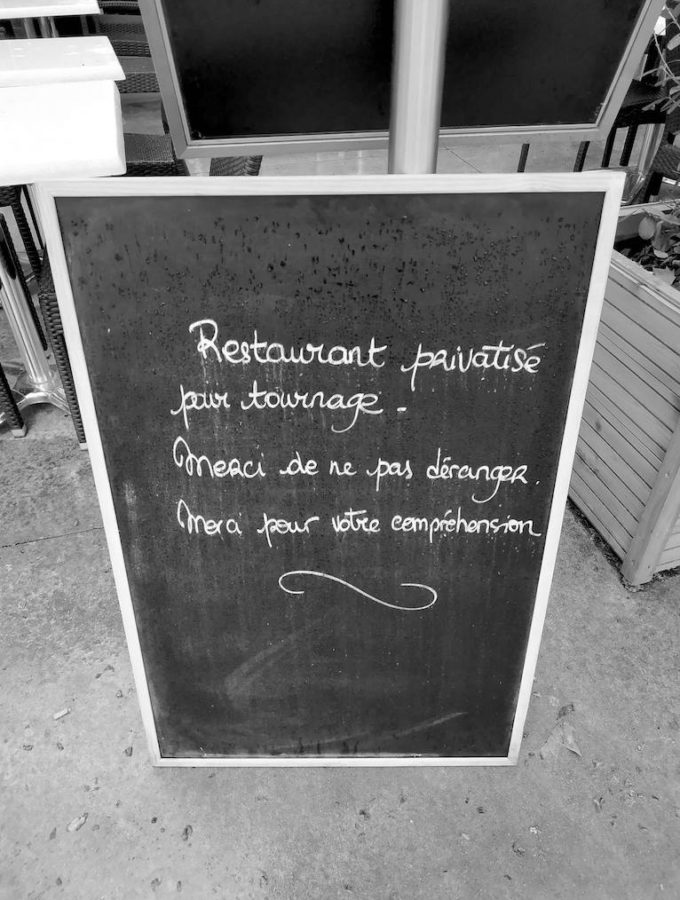 Restaurant privatisé
pour tournage.
Merci de ne pas déranger.
Merci pour votre compréhension